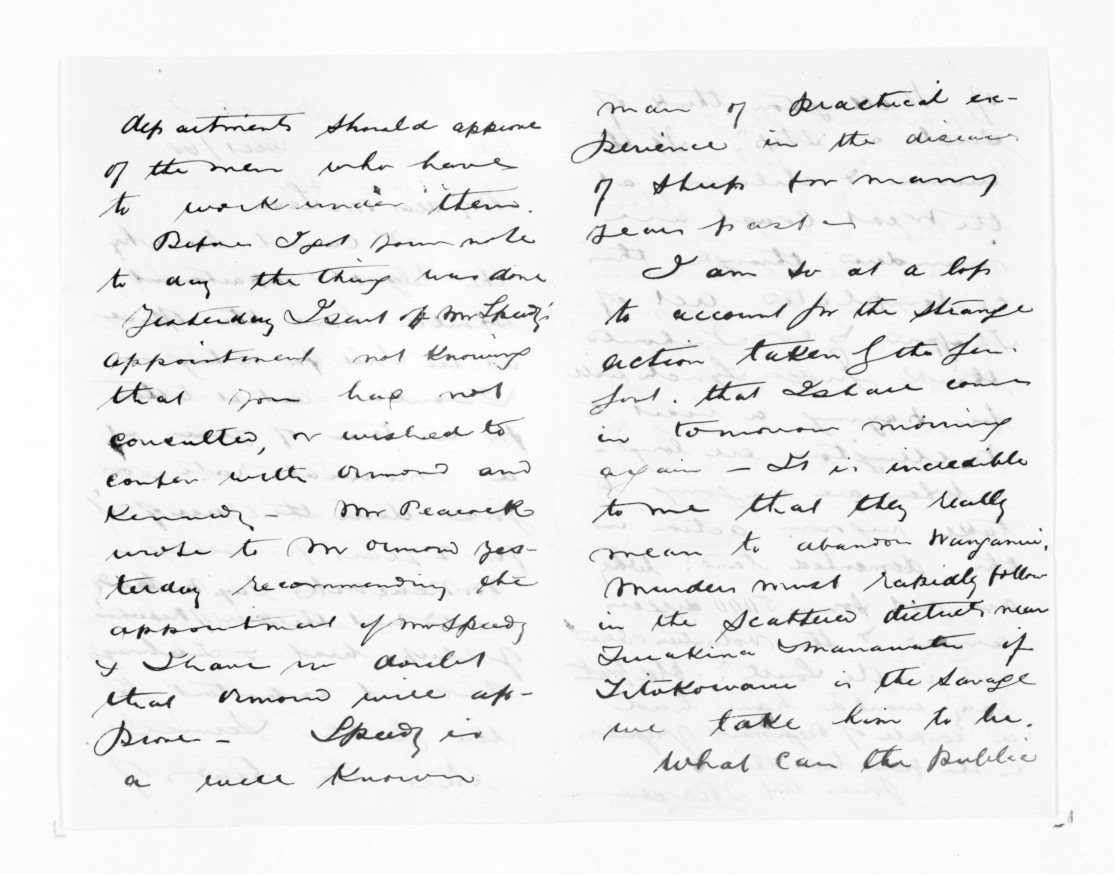 departments should approve
of the men who have
to work under them.
Before I got your note
to day the thing was done
Yesterday I sent off Mr Speedy's
appointment not knowing
that you had not
consulted, or wished to
confer with Ormond and
Kennedy – Mr Peacock
wrote to Mr Ormond yes-
terday recommending the
appointment of Mr Speedy
& I have no doubt
that Ormond will ap-
prove – Speedy is
a well known
man of practical ex-
perience in the diseases
of Sheep for many
years past –
I am so at a loss
to account for the strange
action taken by the Gen.
Govt. that I shall come
in tomorrow morning
again – It is incredible
to me that they really
mean to abandon Wanganui.
Murders must rapidly follow
in the scattered districts near
Turakina & Manawatu if
Titokowaru is the Savage
we take him to be.
What can the public